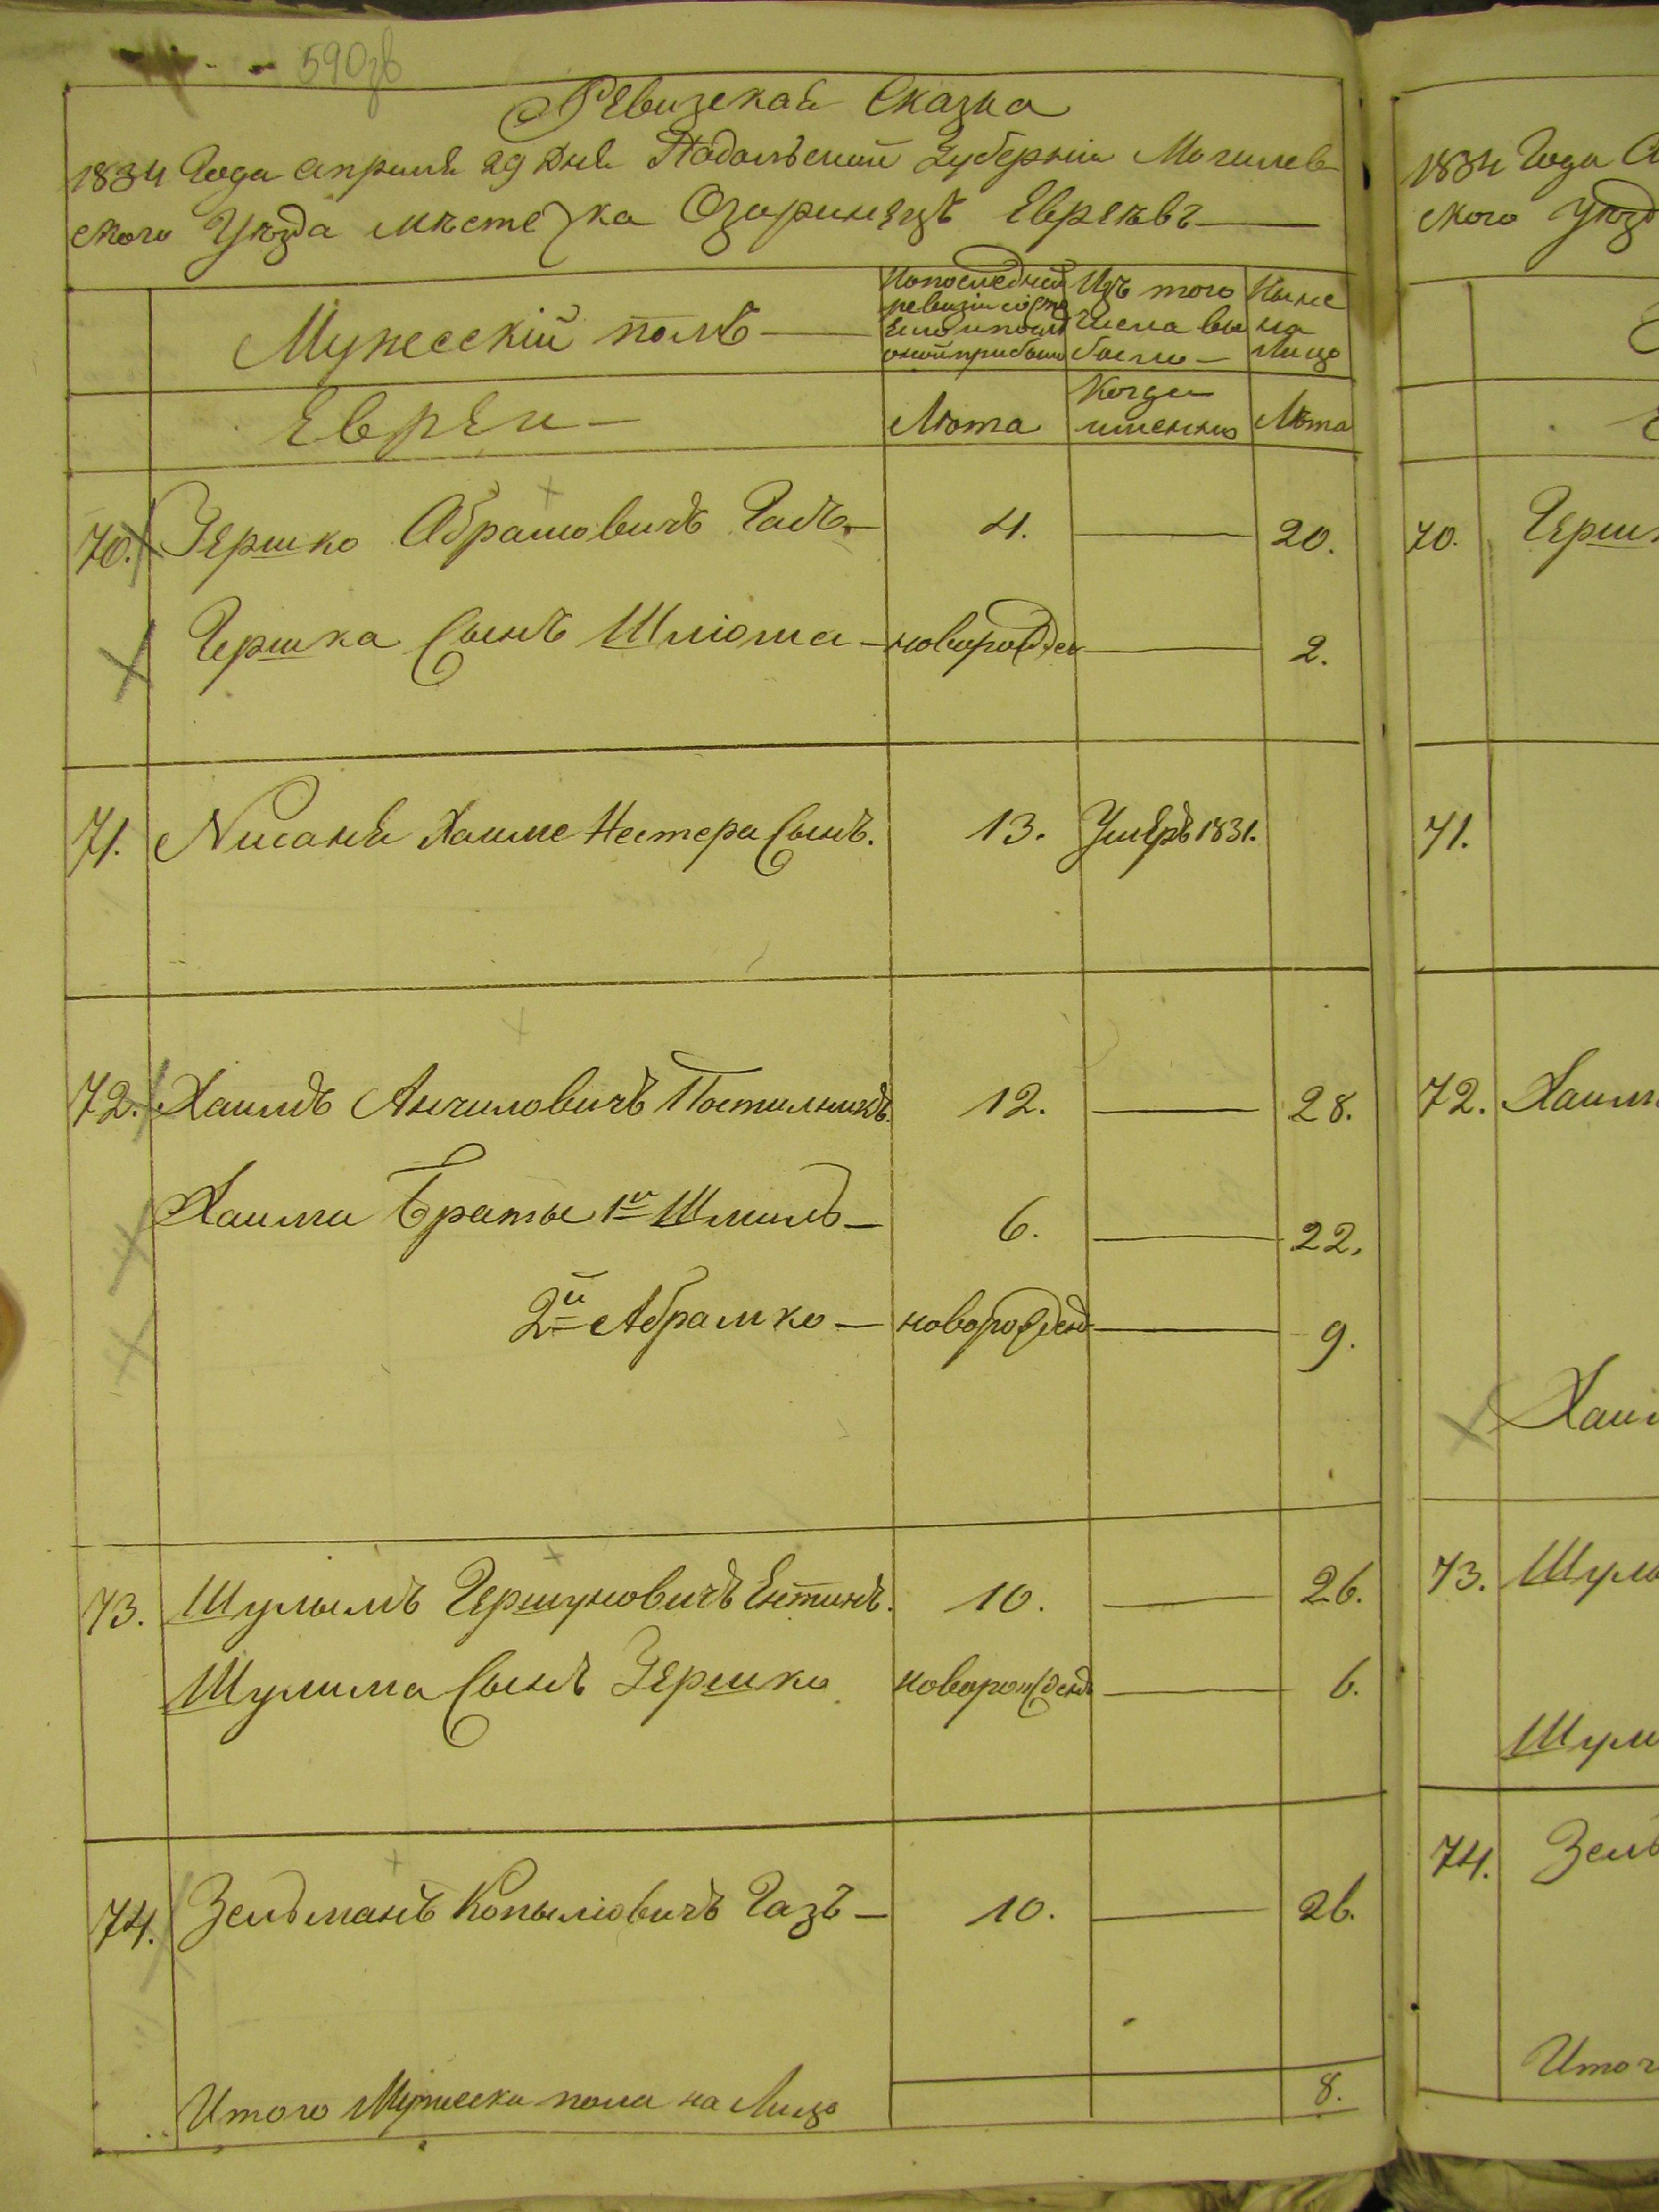 590зв
Ревизская Сказка
1834 Года апреля 29 Дня Подольской Губернии Могилев
ского Уезда местечка Озаринец Евреевъ
Мужеский полъ
По последней
ревизии состо
яло и после
оной прибыло
Изъ того
числа вы
было
Ныне
на
Лицо
Евреи
Лета
Когда
именно
Лета
70. Гершко Абрамовичъ 4. 20.
Гершка Сынъ Шлиома новорожден 2.
71. Нисанъ Хаиме Нестера Сынъ. 13. Умеръ 1831.
72. Хаимъ Анчиловичъ Постильникъ. 12. 28.
Хаима Браты 1й Шмиль 6. 22.
2й Абрамко новорожденъ 9.
73. Шулымъ Гершуновичъ Ентинъ. 10. 26.
Шулима Сынъ Гершко новорожденъ 6.
74. Зельманъ Копылиовичъ Газъ 10. 26.
Итого Мужеска пола на Лицо 8.
1834 Года А
ского Уезд
70. Герш
71.
72. Хаим
Хаи
73. Шул
Шули
74. Зель
Итог